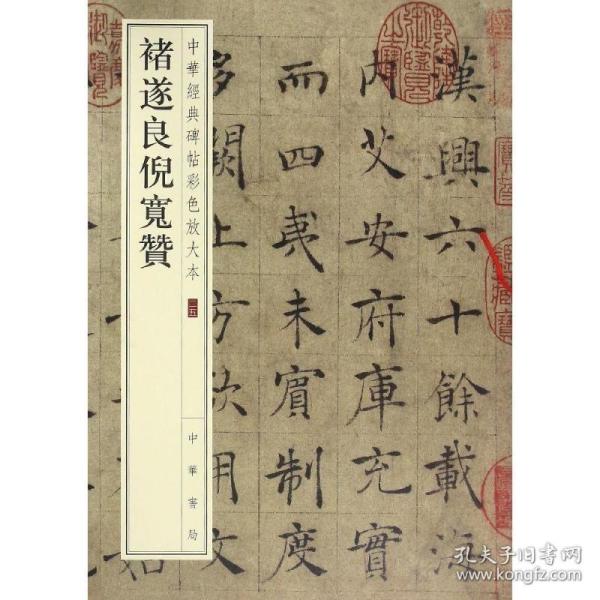 褚遂良倪寬贊
中華經典碑帖彩色放大本
二五
中華書局
漢興六十餘載海
內艾安府庫充實
而四夷未賓制度
多闕上方欲用文
孔夫子旧书网
www.kongfz.com